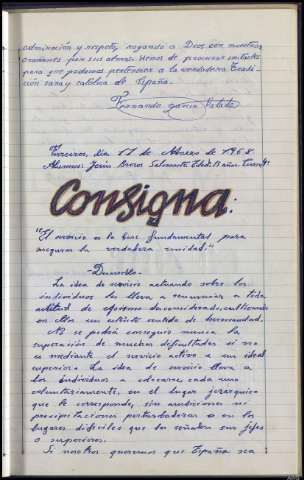 admiración y respeto, rogando a Dios con nuestras
oraciones por sus almas. Hemos de procurar imitarlos
para que podamos pertenecer a la verdadera Tradi-
ción sana y católica de España.
Fernando García
día 17 de Marzo de 1968
Alumno: Jesús Salvador Edad: 13 años.
Consigna:
"El servicio es la base fundamental para
asegurar la verdadera unidad."
Desarrollo.-
La idea de servicio actuando sobre los
individuos les lleva a renunciar a toda
actitud de egoísmo desconsiderado, cultivando
en ellos un estricto sentido de hermandad.
No se podrá conseguir nunca la
superación de muchas dificultades si no
es mediante el servicio activo a un ideal
superior. La idea de servicio lleva a
los individuos a colocarse cada uno
voluntariamente, en el lugar jerárquico
que le corresponde, sin ambiciones ni
precipitaciones perturbadoras o en los
lugares difíciles que les señalen sus jefes
o superiores.
Si nosotros queremos que España sea